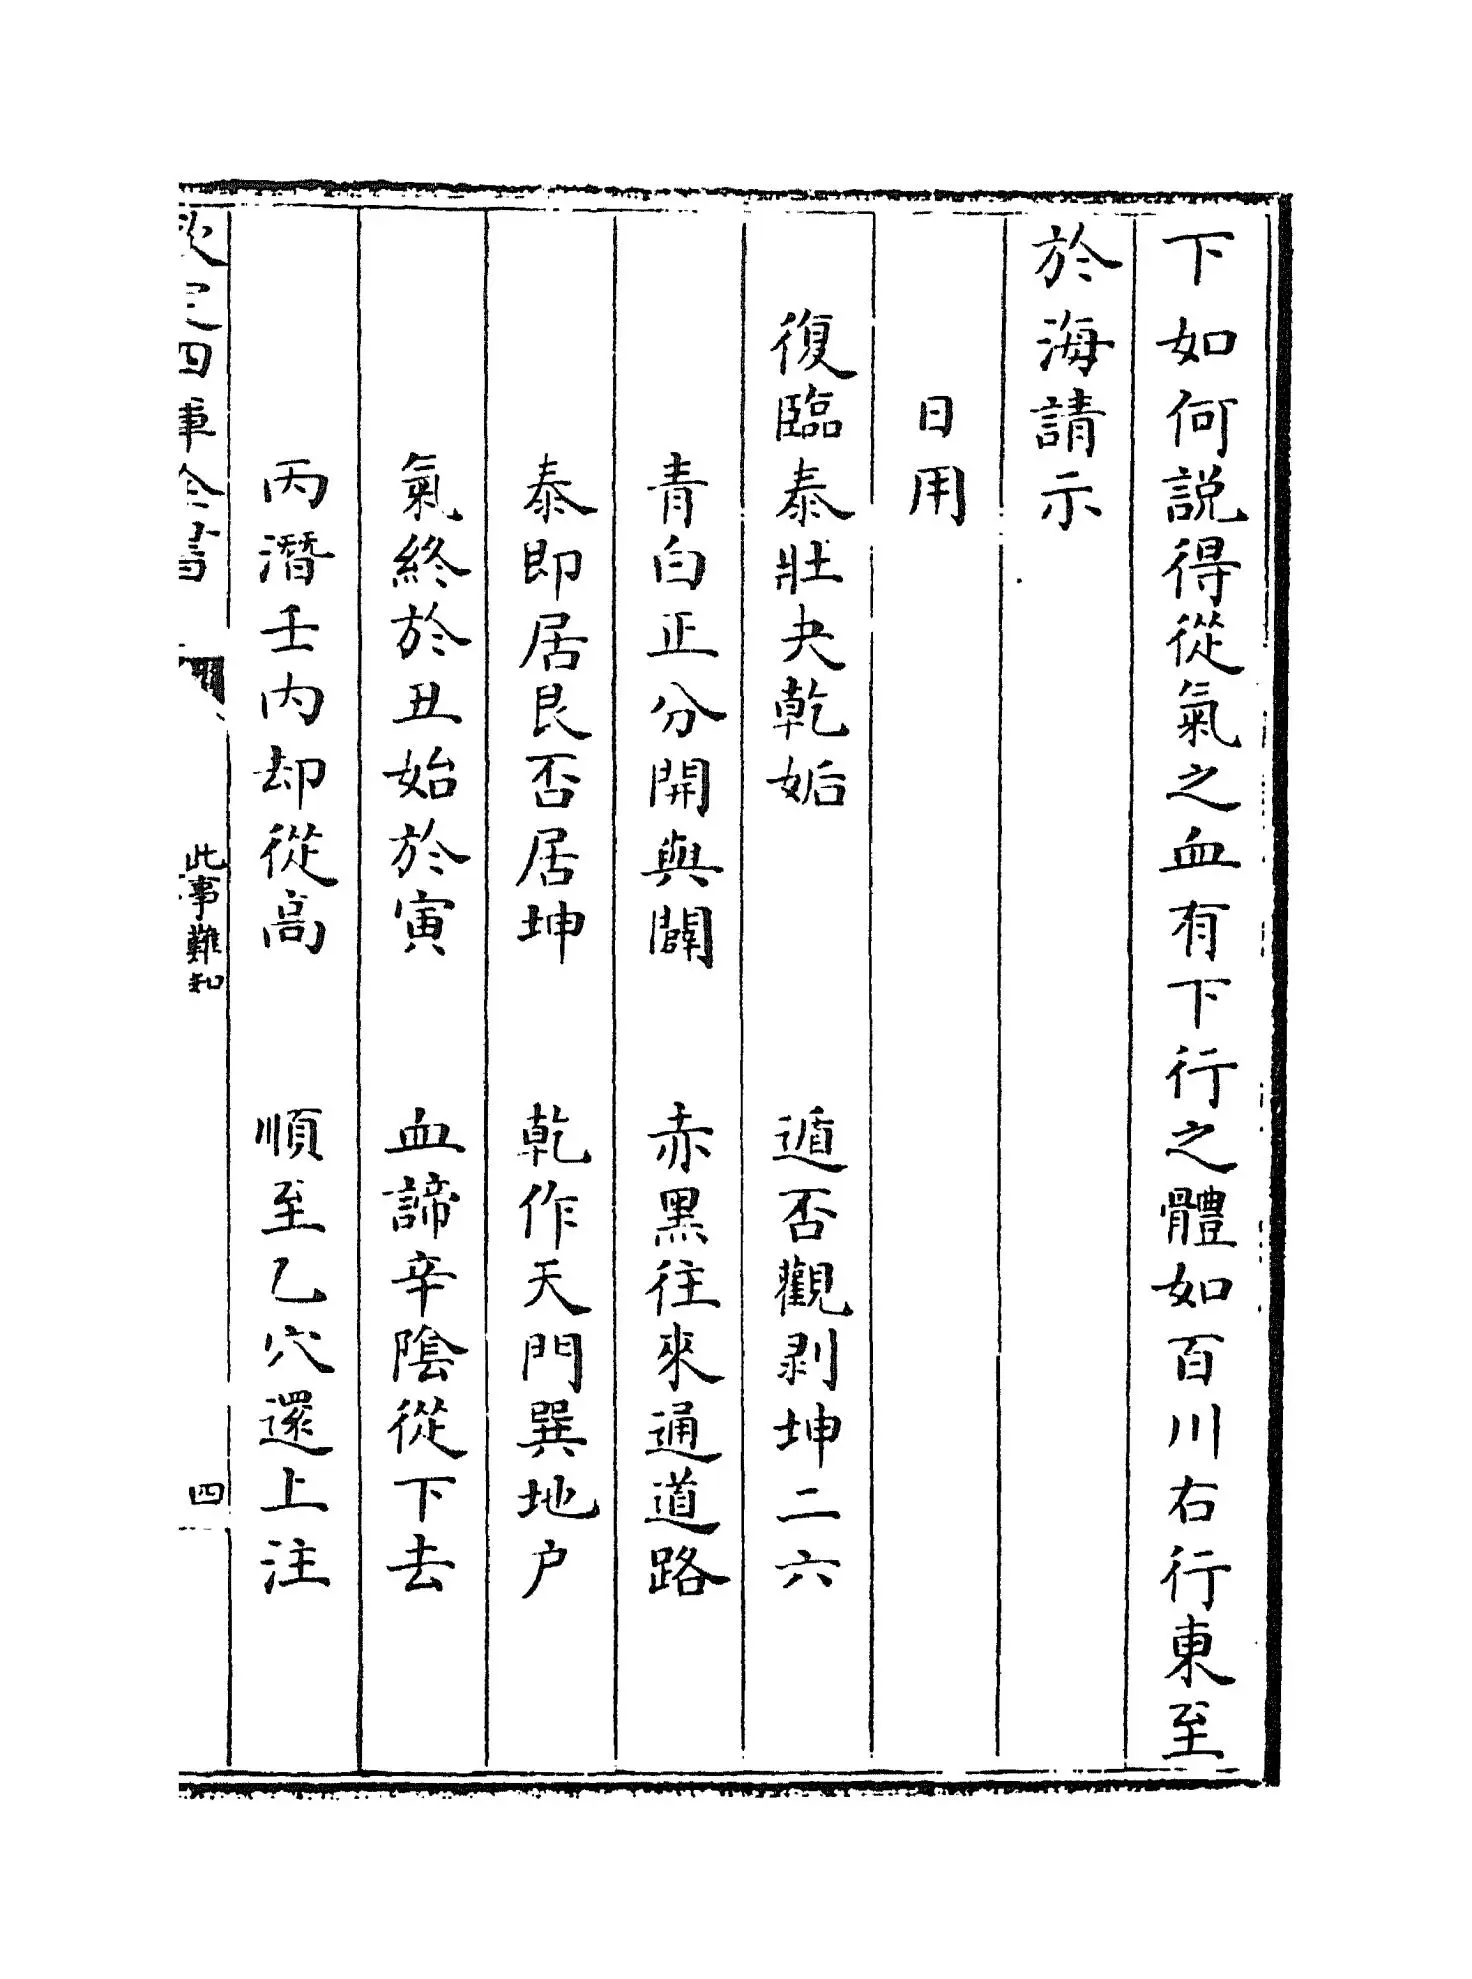 下如何説得從氣之血有下行之體如百川右行東至
於海請示
日用
復臨泰壯夬乾姤　遁否觀剥坤二六
青白正分開與闢　赤黒往來通道路
泰即居艮否居坤　乾作天門巽地户
氣終於丑始於寅　血諦辛隂從下去
丙潛壬内却從高　順至乙穴還上注
欽定四庫全書　此事難知　四